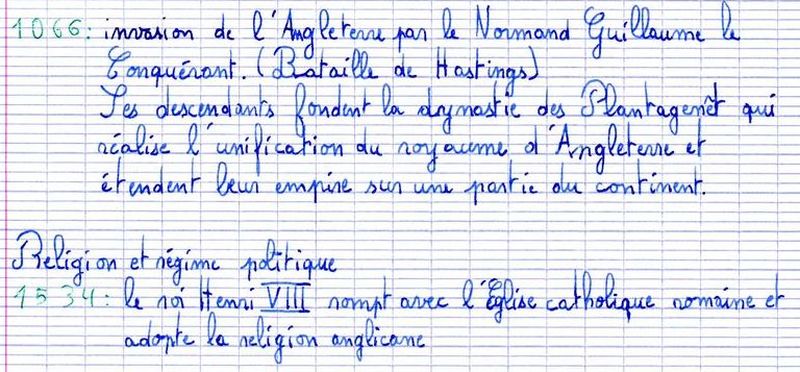 1066: invasion de l'Angleterre par le Normand Guillaume le
Conquérant. (Bataille de Hastings)
Ses descendants fondent la dynastie des Plantagenêt qui
réalise l'unification du royaume d'Angleterre et
étendent leur empire sur une partie du continent.
Religion et régime politique
1534: le roi Henri VIII rompt avec l'Église catholique romaine et
adopte la religion anglicane